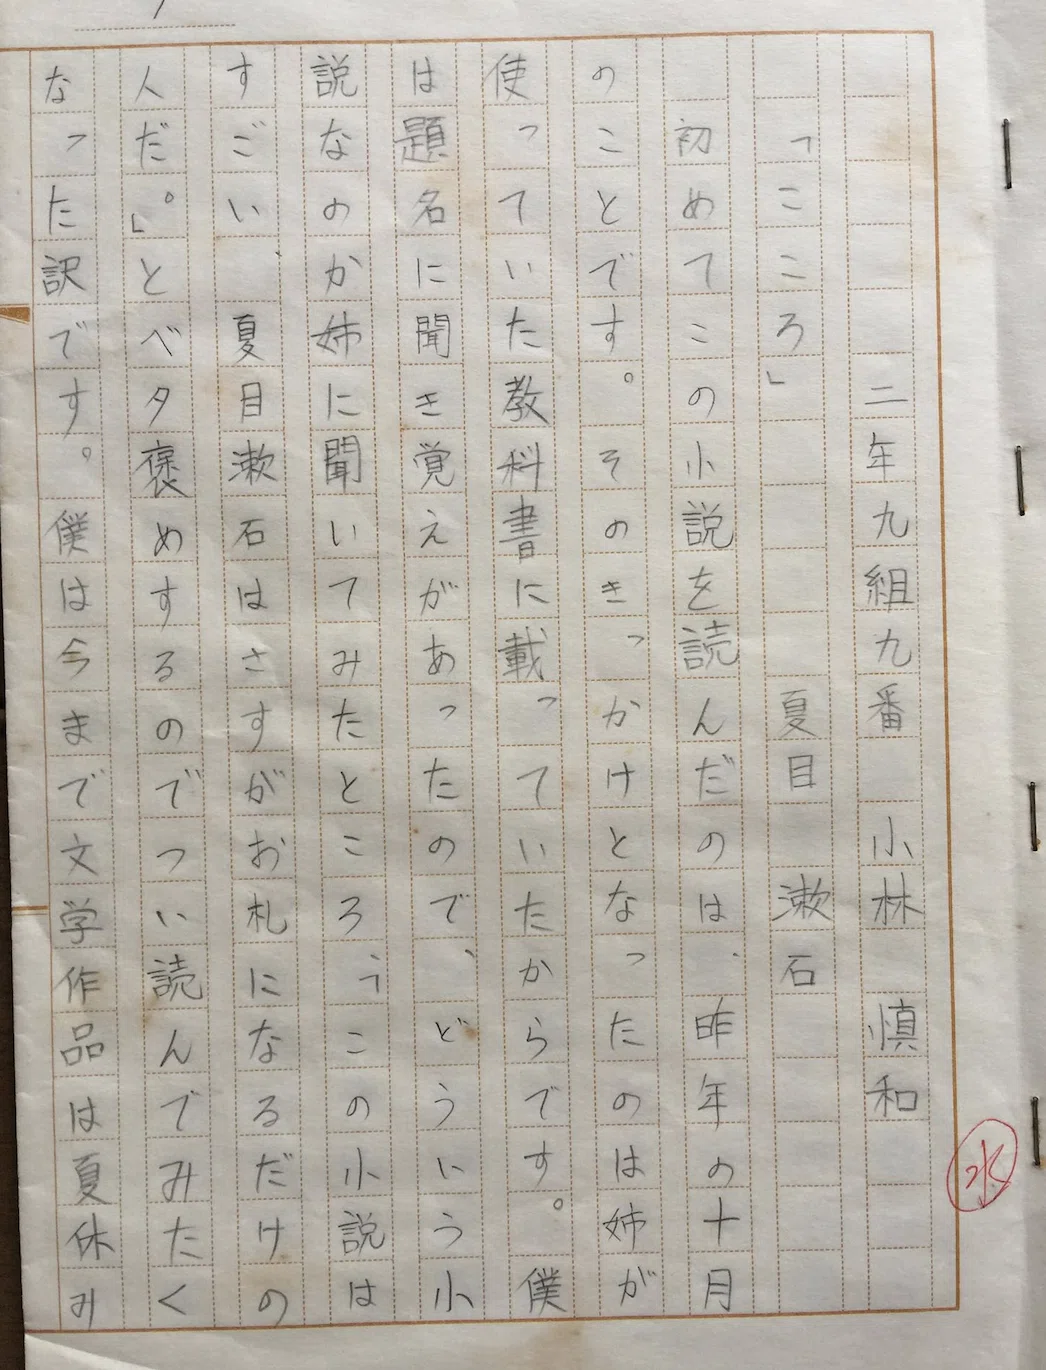 二年九組九番 小林 慎和
「こころ」 夏目 漱石
初めてこの小説を読んだのは、昨年の十月
のことです。そのきっかけとなったのは姉が
使っていた教科書に載っていたからです。僕
は題名に聞き覚えがあったので、どういう小
説なのか姉に聞いてみたところ「この小説は
すごい 夏目漱石はさすがお札になるだけの
人だ。」とベタ褒めするのでつい読んでみたく
なった訳です。僕は今まで文学作品は夏休み
水